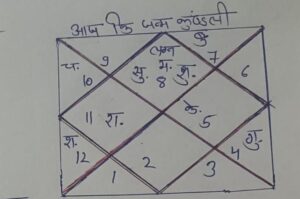 आप कि जन्म कुण्डली
लग्न
बु.
च. 9 सु. म. शु. 7 6
10 8
के.
11 श. 5
गु.
12 2 3 4
1